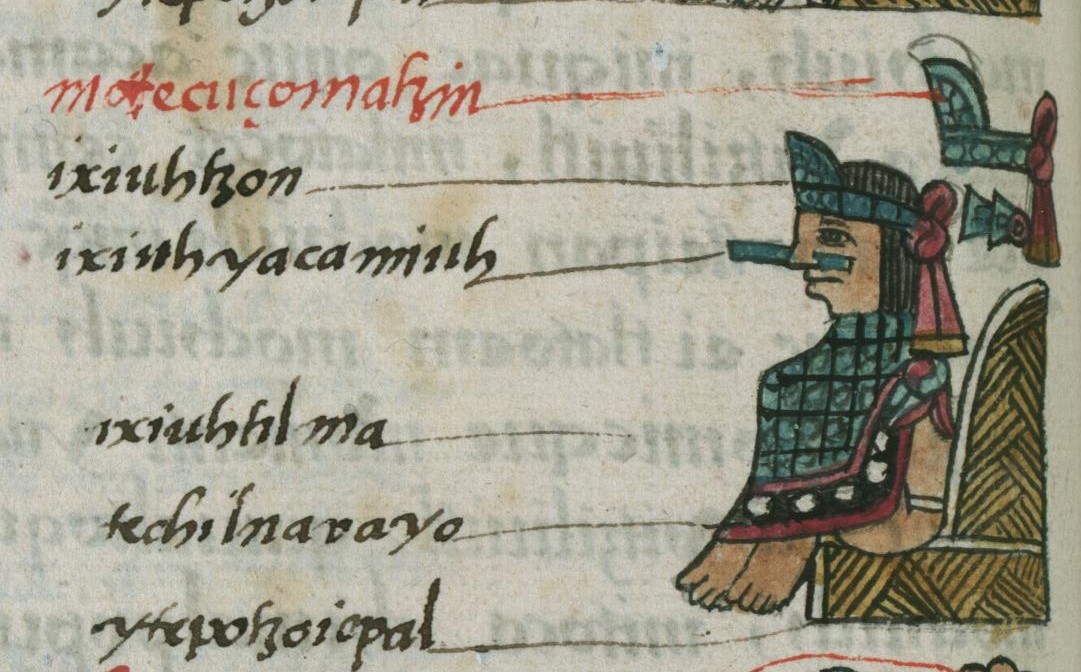 motecuçomatzin
ixiuhtzon
ixiuhyacamiuh
ixiuhtilma
techilnavayo
ytepotzoicpal